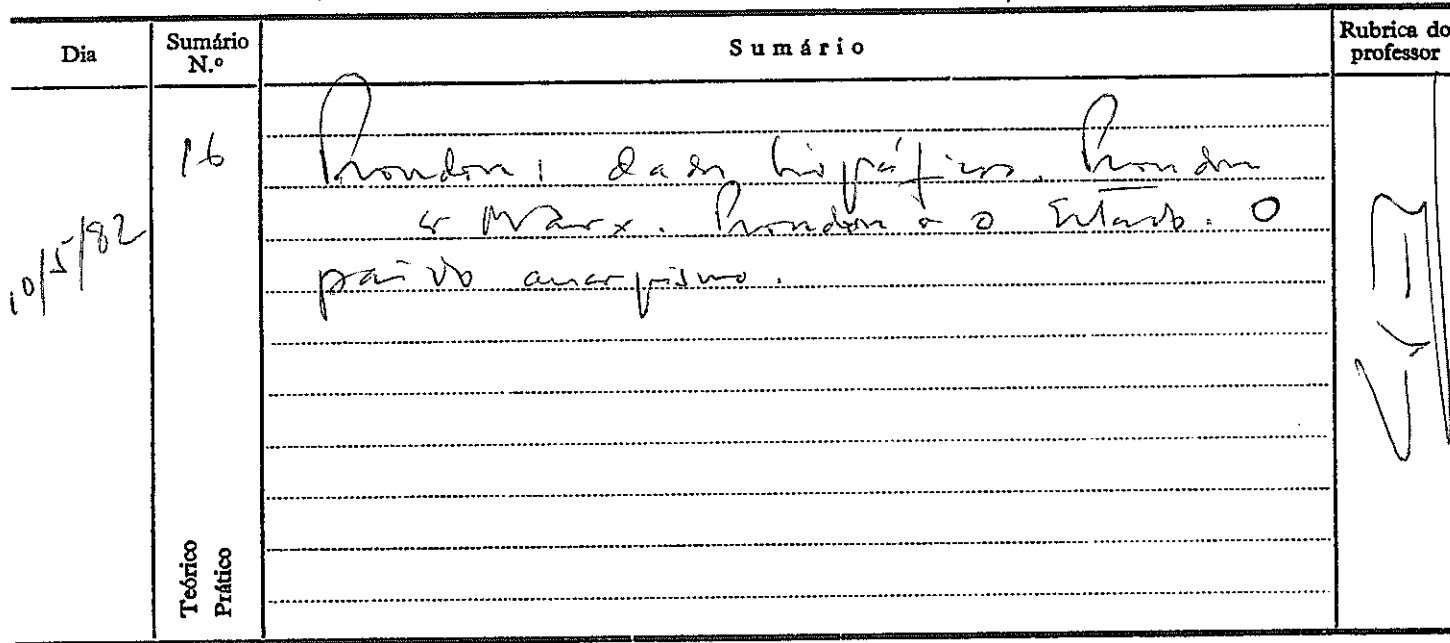 Dia
Sumário N.º
Sumário
Rubrica do professor
10/5/82
16
Proudhon: dados biográficos. Proudhon
e Marx. Proudhon e o Estado. O
pai do anarquismo.
Teórico
Prático